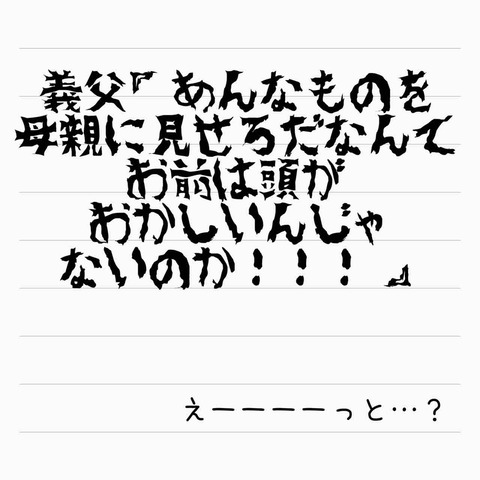 義父『あんなものを
母親に見せろだなんて
お前は頭が
おかしいんじゃ
ないのか！！！』
えーーーーっと…？